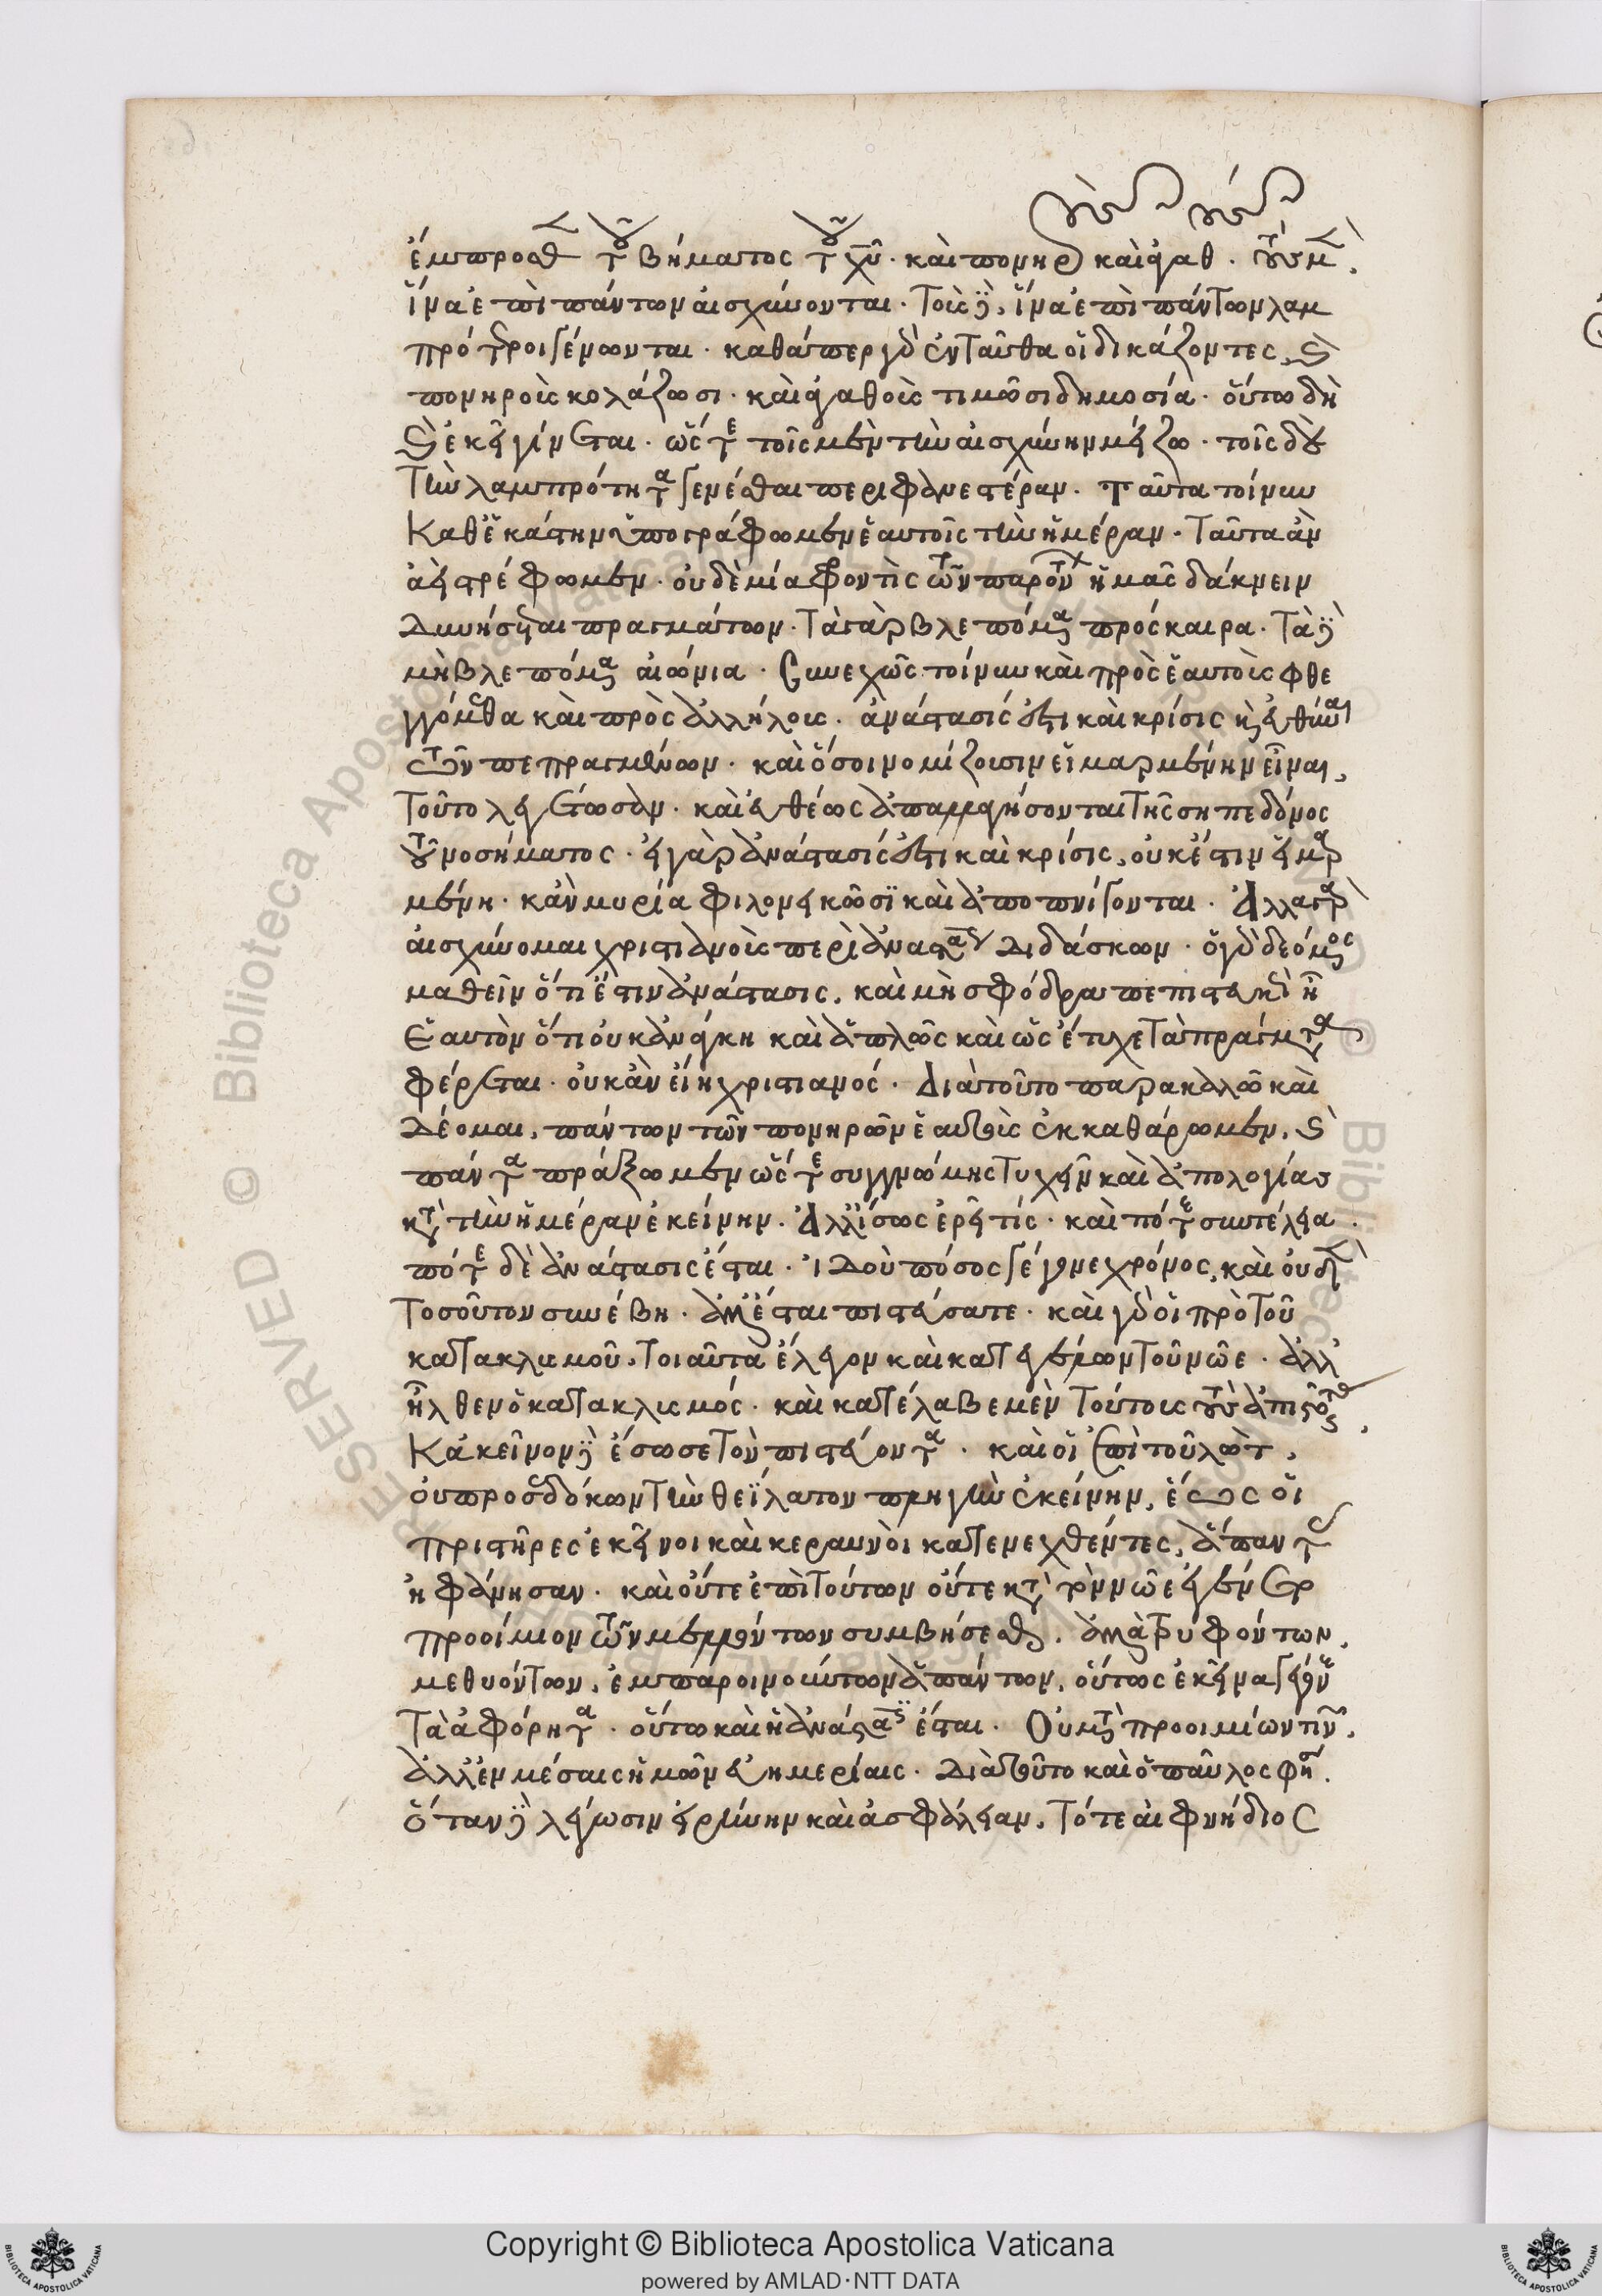 ἔμπροσθεν τοῦ βήματος τοῦ χῦ. καὶ πονηροὺς καὶ ἀγαθούς. τοὺς μὲν,
ἵνα ἐπὶ πάντων αἰσχύνονται. τοῖς δὲ, ἵνα ἐπὶ πάντων λαμ
πρότεροι γένωνται. καθάπερ γὰρ ἐνταῦθα οἱ δικάζοντες, καὶ
πονηροὺς κολάζωσι. καὶ ἀγαθοὺς τιμῶσι δημοσία. οὕτω δὴ
καὶ ἐκεῖ γίνεται. ὥστε τοῖς μὲν τὴν αἰσχύνην μείζω. τοῖς δὲ
τὴν λαμπρότητα γενέσθαι περιφανεστέραν. Ταῦτα τοίνυν
καθ' ἑκάστην ὑπογράφωμεν ἑαυτοῖς τὴν ἡμέραν. Ταῦτα ἂν
ἀεὶ στρέφωμεν. οὐδεμία φροντὶς τῶν παρόντων ἡμᾶς δάκνειν
δυνήσεται πραγμάτων. Τὰ γὰρ βλεπόμενα πρόσκαιρα. Τὰ δὲ
μὴ βλεπόμενα αἰώνια. Συνεχῶς τοίνυν καὶ πρὸς ἑαυτοὺς φθε
γγόμεθα καὶ πρὸς ἀλλήλους. ἀνάστασίς ἐστι καὶ κρίσις καὶ εὐθύναι
τῶν πεπραγμένων. καὶ ὅσοι νομίζουσιν εἱμαρμένην εἶναι,
Τοῦτο λεγέτωσαν. καὶ εὐθέως ἀπαλλαγήσονται τῆς σηπεδόνος
τοῦ νοσήματος. εἰ γὰρ ἀνάστασίς ἐστι καὶ κρίσις, οὐκ ἔστιν εἱμαρ
μένη. κἂν μυρία φιλονεικῶσι καὶ ἀποπνίγονται. Ἀλλὰ γὰρ
αἰσχύνομαι χριστιανοὺς περὶ ἀναστάσεως διδάσκων. ὁ γὰρ δεόμενος
μαθεῖν ὅτι ἔστιν ἀνάστασις, καὶ μὴ σφόδρα πεπεικὼς
ἑαυτὸν ὅτι οὐκ ἀνάγκη καὶ ἁπλῶς καὶ ὡς ἔτυχε τὰ πράγματα
φέρεται. οὐκ ἂν εἴη χριστιανός. Διὰ τοῦτο παρακαλῶ καὶ
δέομαι, πάντων τῶν πονηρῶν ἑαυτοὺς ἐκκαθάρωμεν, καὶ
πάντα πράξωμεν ὥστε συγγνώμης τυχεῖν καὶ ἀπολογίας
κατὰ τὴν ἡμέραν ἐκείνην. Ἀλλ' ἴσως ἐρεῖ τίς. καὶ πότε συντέλεια.
πότε δὲ ἀνάστασις ἔσται. ἰδοὺ πόσος γέγονε χρόνος, καὶ οὐδὲν
τοσοῦτον συνέβη. ἀλλ' ἔσται πιστεύσατε. καὶ γὰρ οἱ πρὸ τοῦ
κατακλυσμοῦ, τοιαῦτα ἔλεγον καὶ κατεγέλων τοῦ νῶε. ἀλλ'
ἦλθεν ὁ κατακλυσμός. καὶ κατέλαβε μὲν τούτους τοὺς ἀπιστοῦντας,
κἀκεῖνον δὲ ἔσωσε τὸν πιστεύοντα. καὶ οἱ ἐπὶ τοῦ λὼτ,
οὐ προσεδόκων τὴν θεήλατον πληγὴν ἐκείνην, ἕως οἱ
πριστῆρες ἐκεῖνοι καὶ κεραυνοὶ κατενεχθέντες, ἅπαντας
ἠφάνησαν. καὶ οὔτε ἐπὶ τούτων οὔτε κατὰ τὸν νῶε ἐγένετο
προοίμιον τῶν μελλόντων συμβήσεσθαι. ἀλλὰ τρυφόντων,
μεθυόντων, ἐμπαροινούντων ἁπάντων, οὕτως ἐκεῖνα γέγονε
Τὰ ἀφόρητα. οὕτω καὶ ἡ ἀνάστασις ἔσται. Οὐ μετὰ προοιμίων τινῶν,
ἀλλ' ἐν μέσαις ἡμῶν εὐημερίαις. Διὰ τοῦτο καὶ ὁ παῦλος φησὶ.
ὅταν δὲ λέγωσιν εἰρήνην καὶ ἀσφάλειαν, Τότε αἰφνήδιος